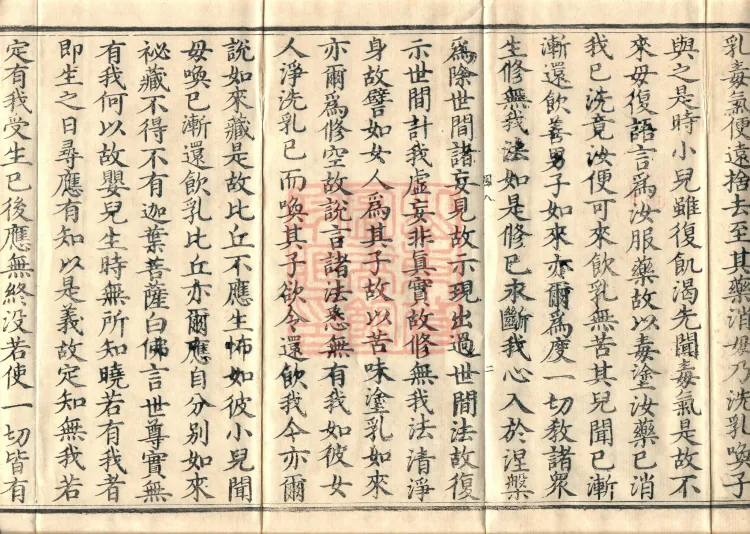 乳毒氣便遠捨去至其藥消母乃洗乳喚子
與之是時小兒雖復飢渴先聞毒氣是故不
來母復語言爲汝服藥故以毒塗汝藥已消
我已洗竟汝便可來飲乳無苦其兒聞已漸
漸還飲善男子如來亦爾爲度一切教諸衆
生修無我法如是修已永斷我心入於涅槃
爲除世間諸妄見故示現出過世間法故復
示世間計我虛妄非眞實故修無我法清淨
身故譬如女人爲其子故以苦味塗乳如來
亦爾爲修空故說言諸法悉無有我如彼女
人淨洗乳已而喚其子欲令還飲我今亦爾
說如來藏是故比丘不應生怖如彼小兒聞
母喚已漸還飲乳比丘亦爾應自分別如來
祕藏不得不有迦葉菩薩白佛言世尊實無
有我何以故嬰兒生時無所知曉若有我者
即生之日尋應有知以是義故定知無我若
定有我受生已後應無終没若使一切皆有